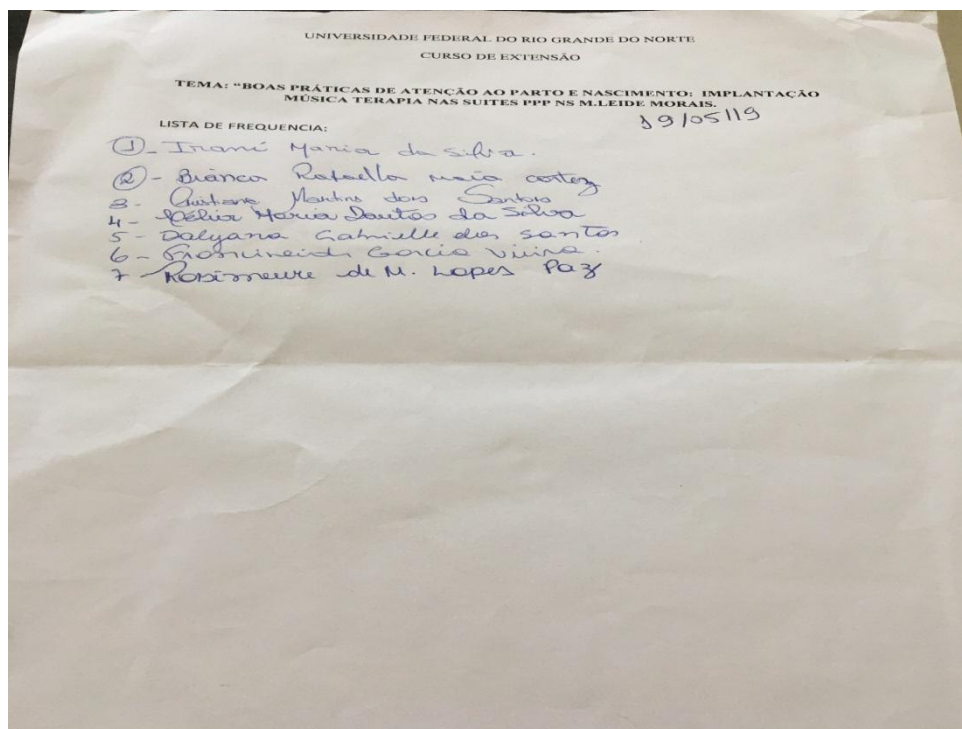 UNIVERSIDADE FEDERAL DO RIO GRANDE DO NORTE
CURSO DE EXTENSÃO
TEMA: "BOAS PRÁTICAS DE ATENÇÃO AO PARTO E NASCIMENTO: IMPLANTAÇÃO
MÚSICA TERAPIA NAS SUITES PPP NS M.LEIDE MORAIS.
19/05/19
LISTA DE FREQUENCIA:
1 - Iraní Maria da Silva.
2 - Bianca Rafaella Maia cortez
3 - Cristiane Martins dos Santos
4 - Maria Dantas da Silva
5 - Dalyana Gabrielle dos santos
6 - Francineide Garcia Vieira.
7 - Rosimeure de M. Lopes Paz